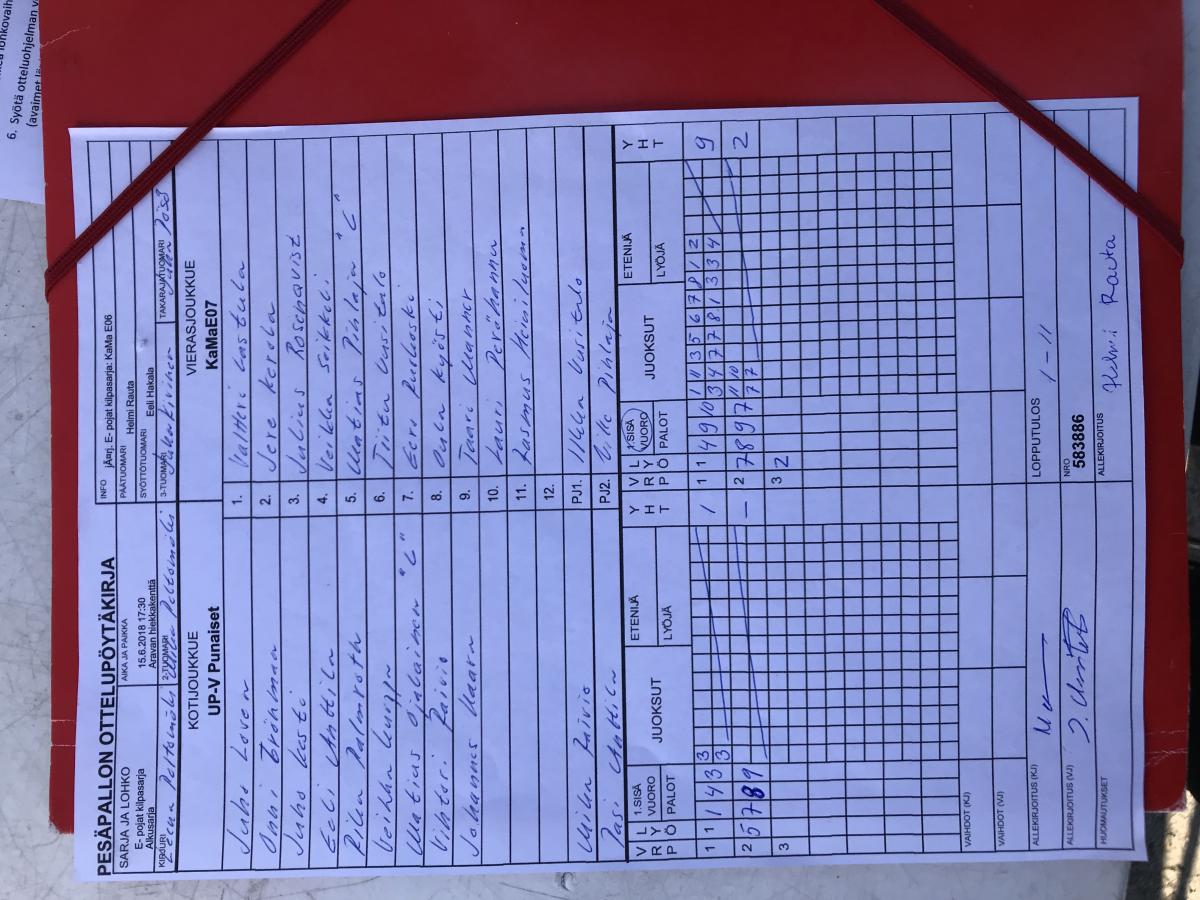 6. Syötä otteluohjelman
(avaimet
PESÄPALLON OTTELUPÖYTÄKIRJA
SARJA JA LOHKO
E- pojat kilpasarja
Alkusarja
AIKA JA PAIKKA
15.6.2018 17:30
Aravan hiekkakenttä
INFO jÄarj. E- pojat kilpasarja: KaMa E06
PÄÄTUOMARI Helmi Rauta
SYÖTTÖTUOMARI Eeli Hakala
KIRJURI Leena Peltomäki
2-TUOMARI Peltomäki
3-TUOMARI
TAKARAJATUOMARI
KOTIJOUKKUE
UP-V Punaiset
VIERASJOUKKUE
KaMaE07
Juho Loven 1. Valtteri Lastula
Onni Bröhlman 2. Jere Kerola
Juho Lasti 3. Julius Rosenqvist
Eeli Anttila 4. Veikka Seikkeli
Riku Palmroth 5. Matias Pihlaja "C"
Veikka 6. Tiitu Uusitalo
Matias Ojalainen "C" 7. Eero
Vihtori Paivio 8. Onni Kyösti
Johannes Haara 9. Taavi Manner
10. Lauri Perähannu
11. Rasmus Heiniluoma
12.
Milan Paivio PJ1. Ilkka Uusitalo
Pasi Anttila PJ2. Ville Pihlaja
VRY LPÖ 1.SISÄ VUORO PALOT JUOKSUT ETENIJÄ LYÖJÄ YHT VRY LPÖ 1.SISÄ VUORO PALOT JUOKSUT ETENIJÄ LYÖJÄ YHT
1 1 1 4 3 3 3 1 1 1 4 9 10 1 11 3 5 6 7 8 1 2 9
3 4 7 7 8 1 3 3 4
2 5 7 8 9 – 2 7 8 9 7 11 10 2
7 7
3 3 2
VAIHDOT (KJ)
VAIHDOT (VJ)
ALLEKIRJOITUS (KJ) LOPPUTULOS 1 - 11
ALLEKIRJOITUS (VJ) NRO 583886
HUOMAUTUKSET ALLEKIRJOITUS Helmi Rauta